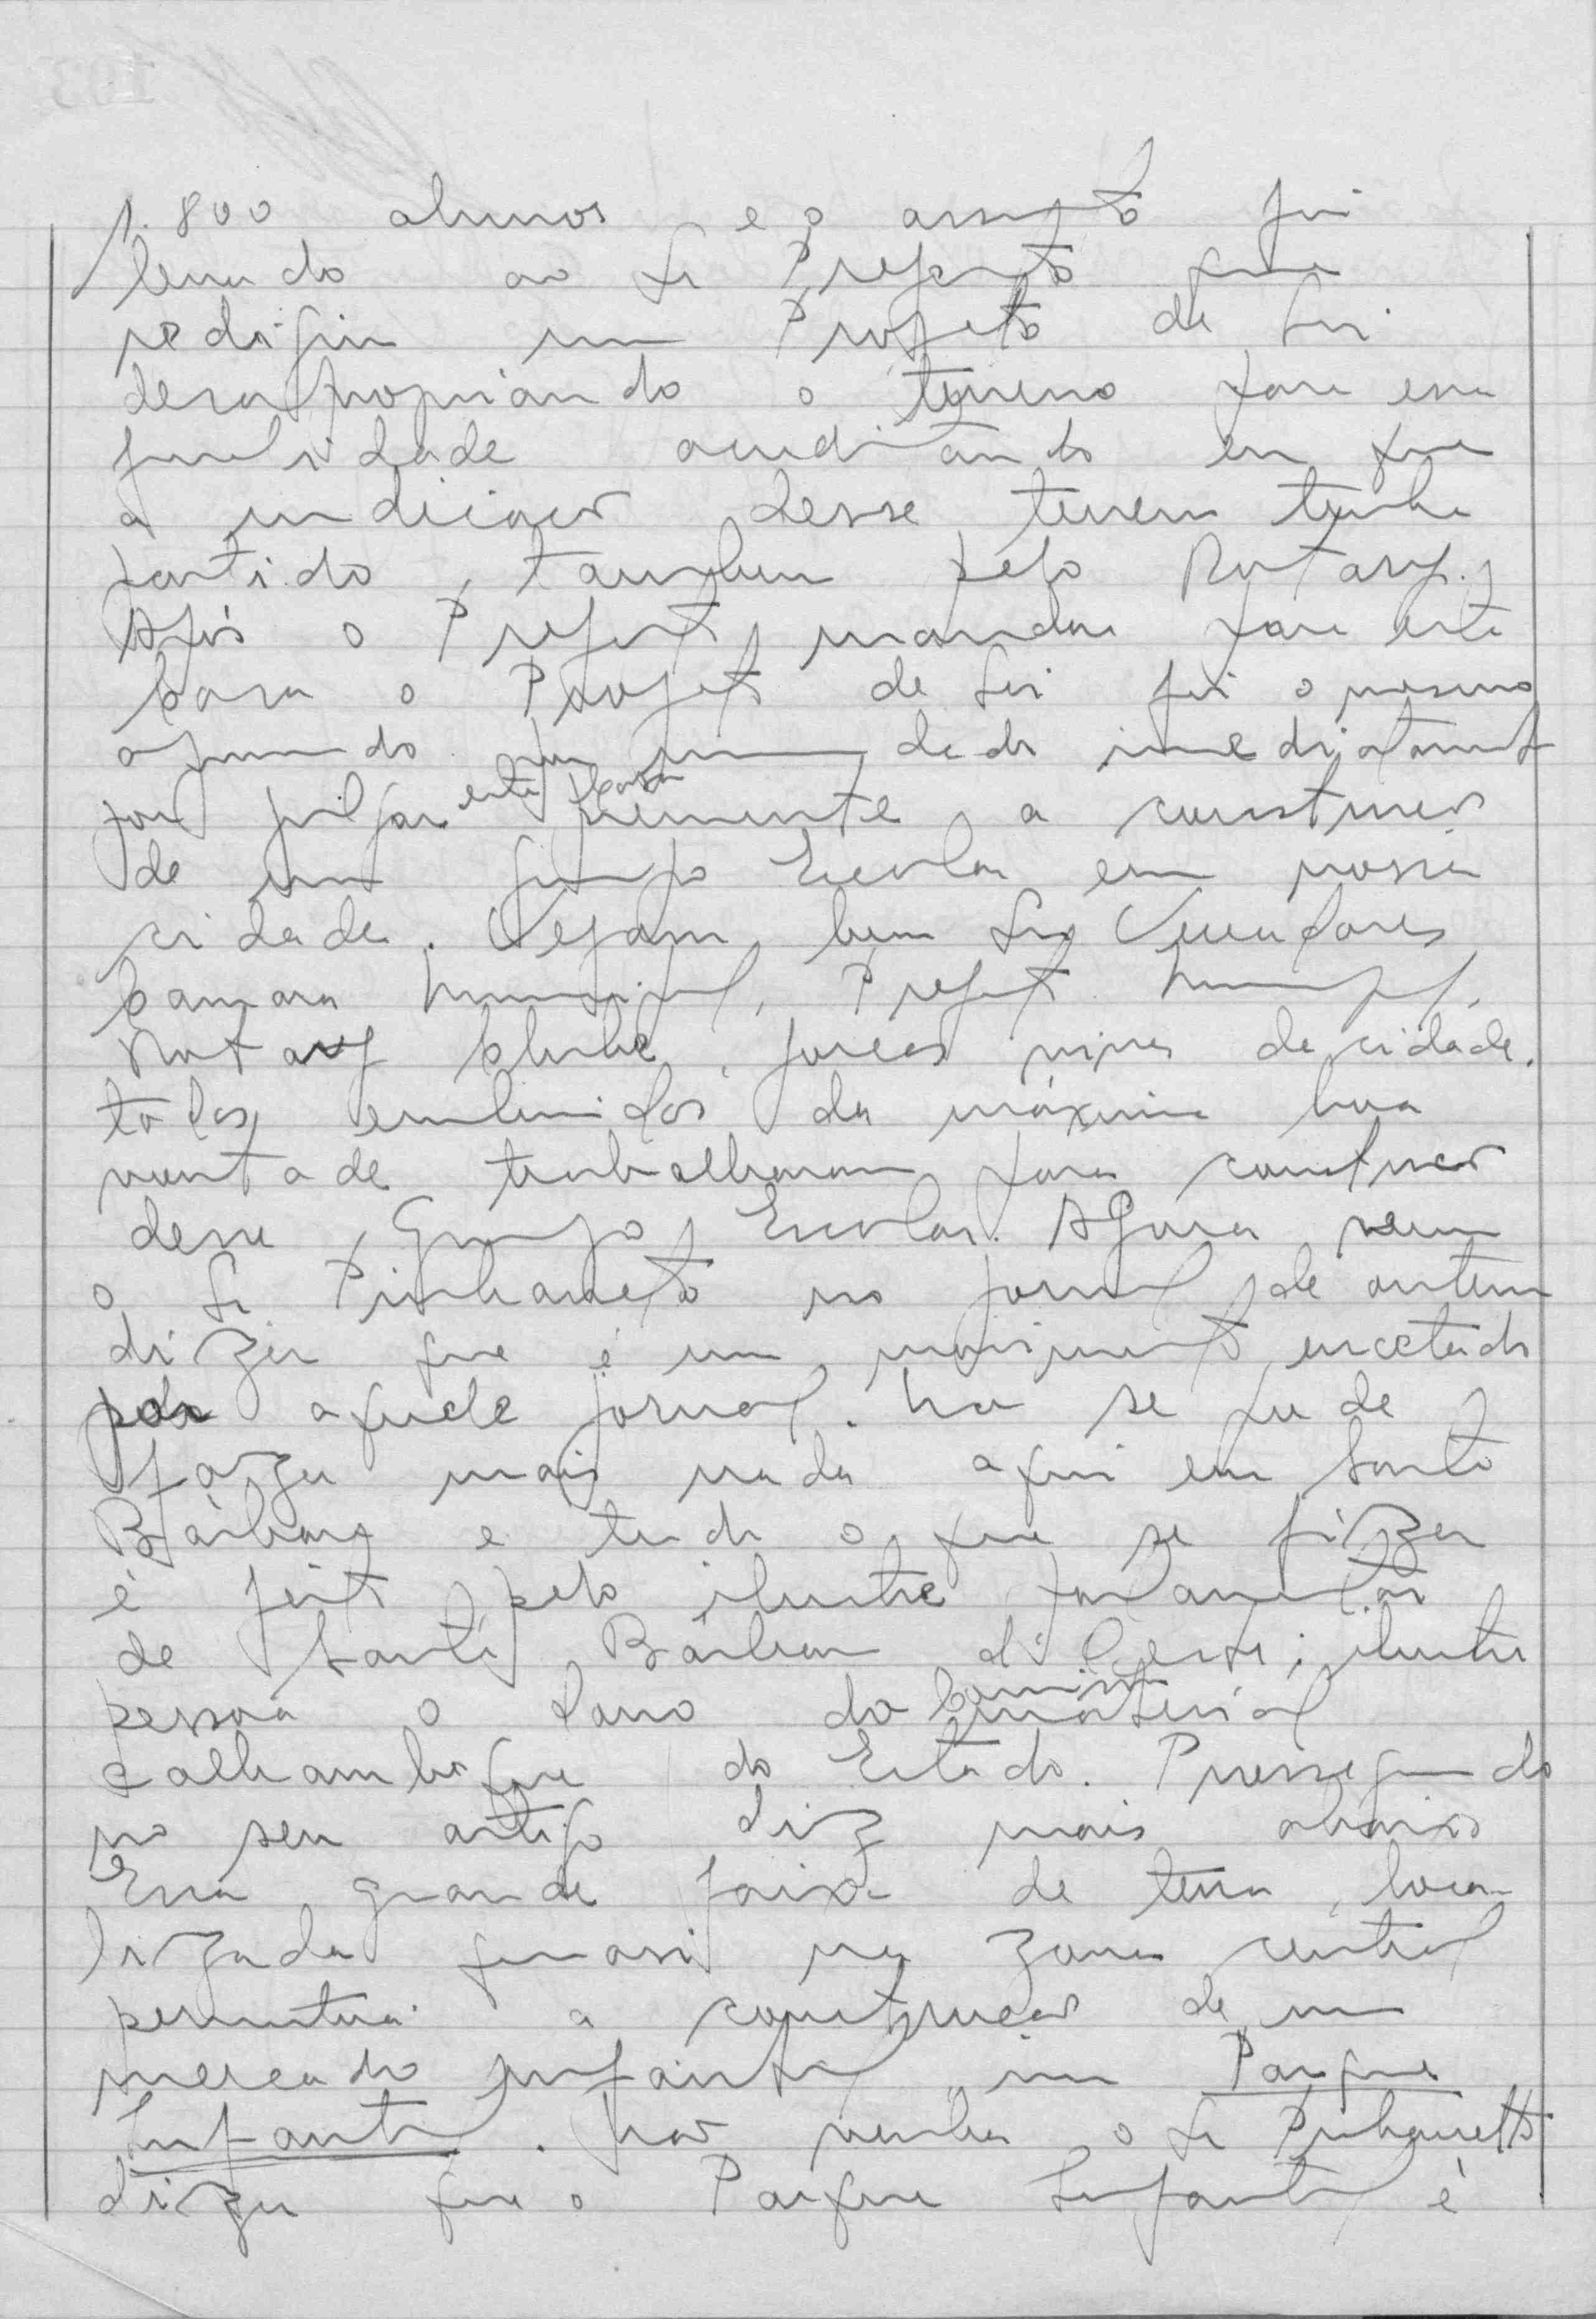 1.800 alunos e o assunto foi
levado ao Sr Prefeito que
redigiu um Projeto de Lei
desapropriando o terreno para essa
finalidade acreditando em que
a indicação desse terreno tenha
partido, tambem pelo Rotary.
Após o Prefeito mandar para esta
Casa o Projeto de Lei foi o mesmo
aprovado por unanimidade imediatamente
por julgar esta Casa premente a construção
de um Grupo Escolar em nossa
cidade. Vejam bem Srs Vereadores
Camara Municipal, Prefeito Municipal,
Rotary Clube, forças vivas da cidade.
todos embuidos da máxima boa
vontade trabalharam para construção
desse Grupo Escolar. Agora vem
o Sr Pinhaneto no jornal de ontem
dizer que é um movimento encetado
por aquele jornal. Não se pode
fazer mais nada aqui em Santa
Bárbara e tudo o que se fizer
é feito pelo ilustre parlamentar
de Santa Bárbara d'Oeste; ilustre
pessoa o dono do material
calhambeque do Estado. Prosseguindo
no seu artigo diz mais abaixo
Essa grande faixa de terra, loca-
lizada quasi na zona central
permitirá a construção de um
mercado infantil, um Parque
Infantil. Não venha o Sr Pinhanelto
dizer que o Parque Infantil é